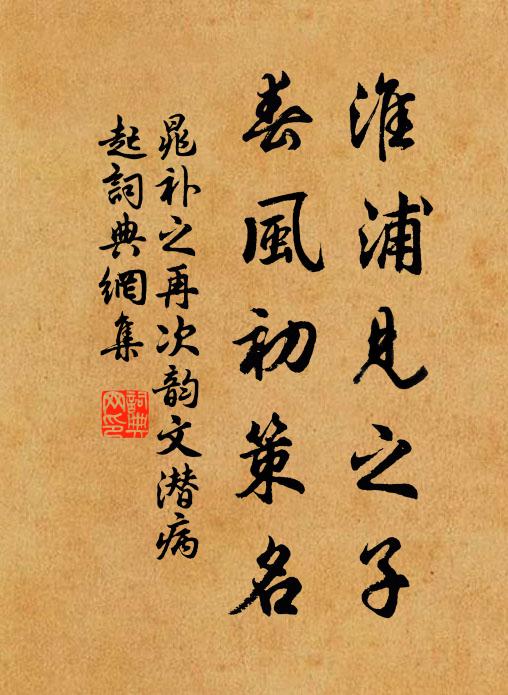 淮浦見之子
春風初策名
晁补之再次韵文潜病
起詞典網集
詞典
网印